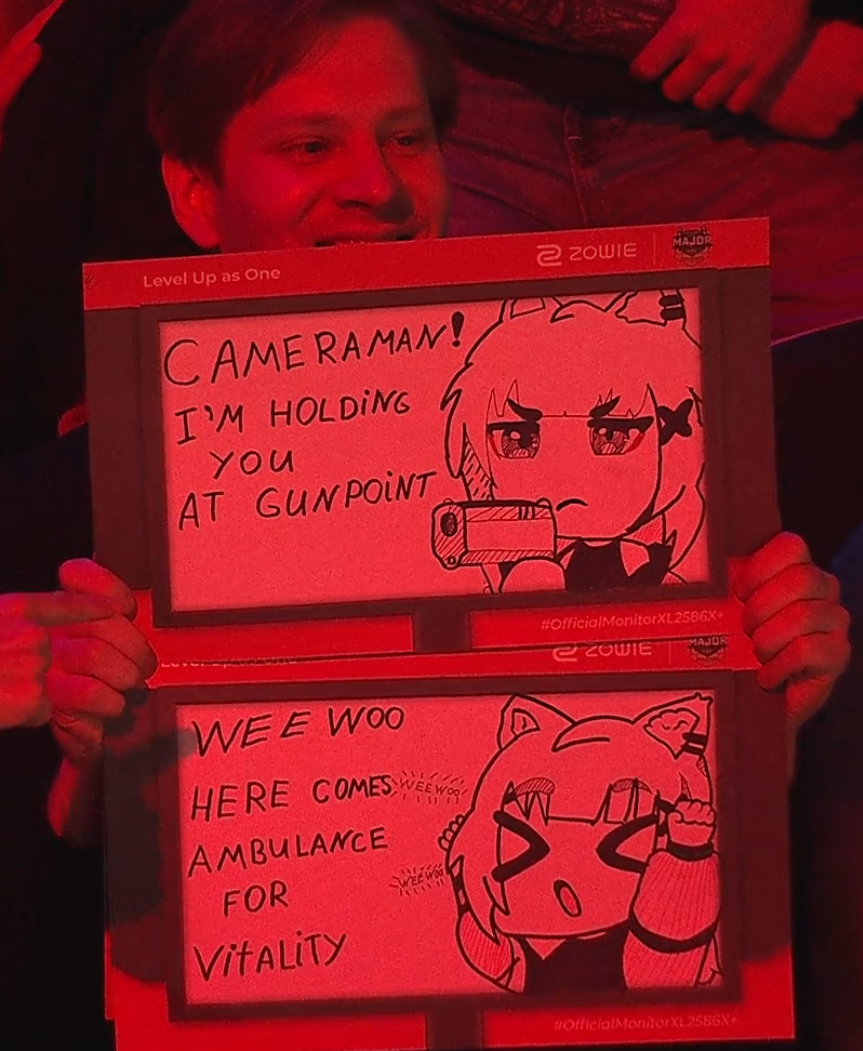 Level Up as One
ZOWIE
MAJOR
CAMERAMAN!
I'M HOLDING
YOU
AT GUNPOINT
#OfficialMonitorXL2586X+
ZOWIE
MAJOR
WEE WOO
HERE COMES WEEWOO
AMBULANCE
WEEWOO
FOR
VITALITY
#OfficialMonitorXL2586X+